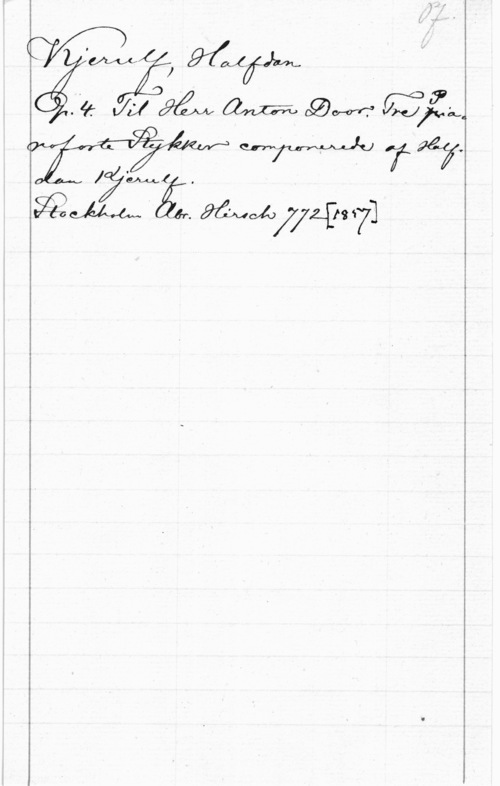 Pf.
Kjerulf, Halfdan
Op. 4. Til Herr Anton Door: Tre Pia-
noforte Stykker componerede af Half-
dan Kjerulf.
Stockholm Abr. Hirsch 772 [1857]